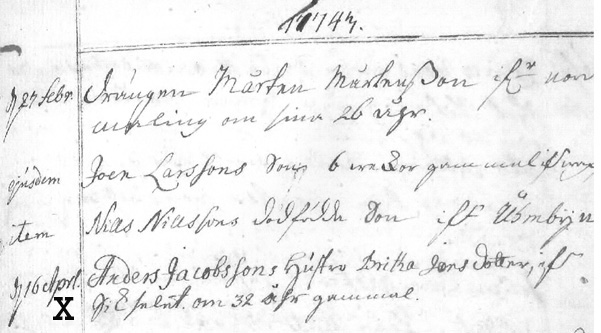 1743.
d 27 Febr. Drängen Mårten Mårtensson ifr Nor
maling om sina 26 åhr.
ejusdem Joen Larssons Son 6 weckor gammal if
item Nills Nillssons dödfödde Son ifr
d 16 Aprl. Anders Jacobssons Hustro Brita Jons dotter, if
X om 32 åhr gammal.